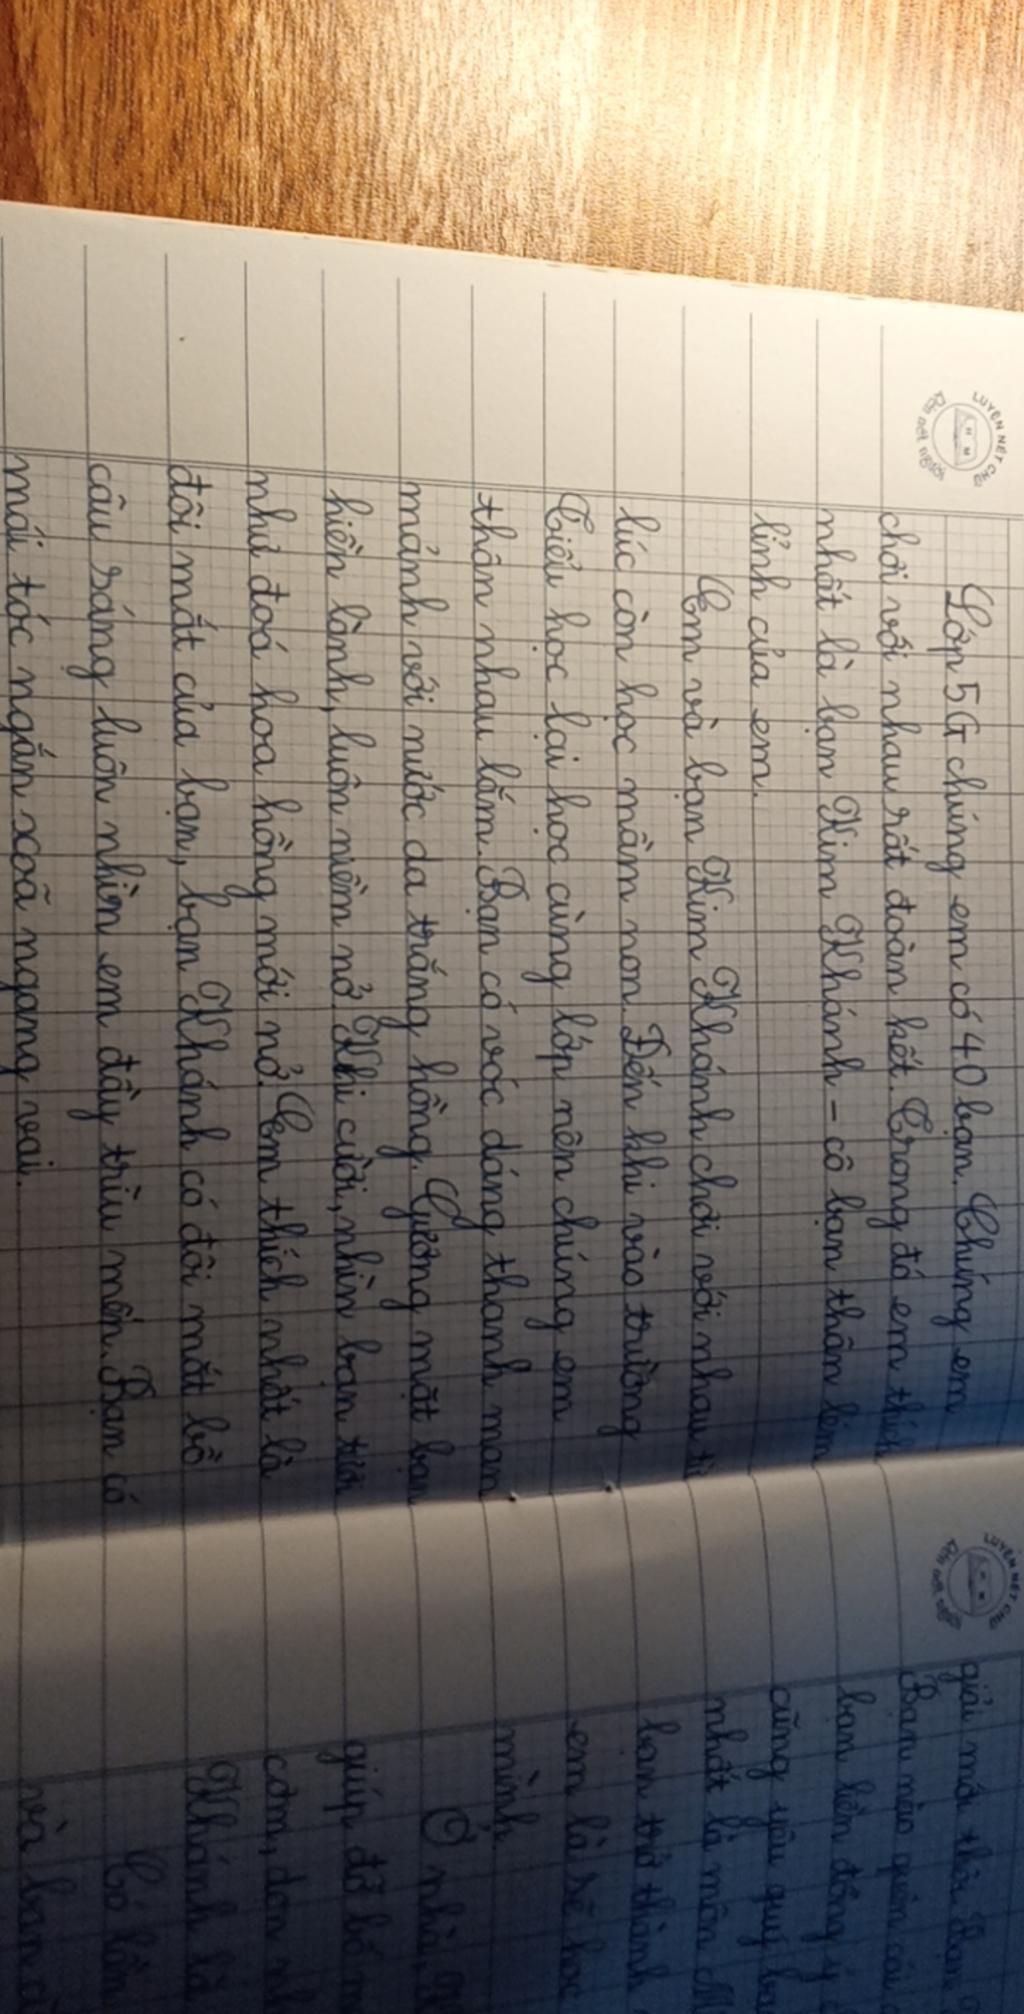 LUYỆN NÉT CHỮ
Lớp 5G chúng em có 40 bạn. Chúng em
chơi với nhau rất đoàn kết. Trong đó em thích
nhất là bạn Kim Khánh - cô bạn thân lém
lỉnh của em.
Em và bạn Kim Khánh chơi với nhau từ
lúc còn học mầm non. Đến khi vào trường
Tiểu học lại học cùng lớp nên chúng em
thân nhau lắm. Bạn có vóc dáng thanh man
mảnh với nước da trắng hồng. Gương mặt bạn
hiền lành, luôn niềm nở. Khi cười, nhìn bạn tươi
như đoá hoa hồng mới nở. Em thích nhất là
đôi mắt của bạn, bạn Khánh có đôi mắt bồ
câu sáng luôn nhìn em đầy trìu mến. Bạn có
mái tóc ngắn xoã ngang vai.
LUYỆN NÉT CHỮ
giải mới thôi. Bạn
Bạn nào quên cái
bạn liền đồng ý
cũng yêu quý bạn
nhất là môn
bạn trở thành
em là sẽ học
mình.
Ở nhà,
giúp đỡ bố m
cơm, dọn nh
Khánh là
Có lần
và bạn